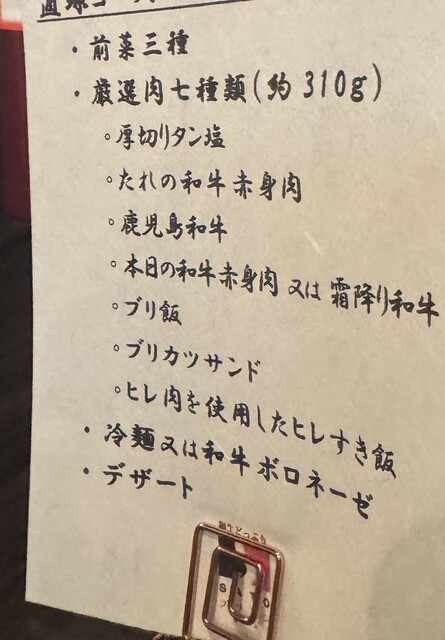 ・前菜三種
・厳選肉七種類(約310g)
。厚切りタン塩
。たれの和牛赤身肉
。鹿児島和牛
。本日の和牛赤身肉 又は 霜降り和牛
。ブリ飯
。ブリカツサンド
。ヒレ肉を使用したヒレすき飯
・冷麺又は和牛ボロネーゼ
・デザート